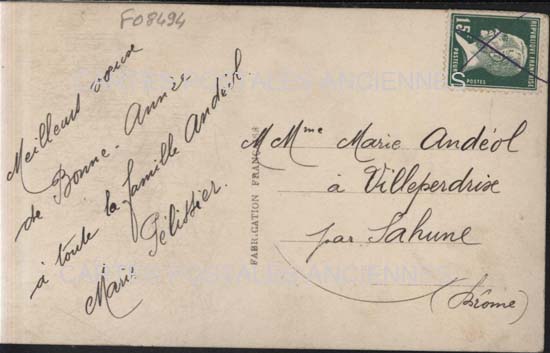 F08494
Meilleurs voeux
de Bonne-Année
à toute la famille Andéol
Marie Pélissier.
FABRICATION FRANÇAISE
REPUBLIQUE FRANÇAISE
15c
PASTEUR
POSTES
M Mme Marie Andéol
à Villeperdrix
par Sahune
(Drôme)
CARTES POSTALES ANCIENNES
CARTES POSTALES ANCIENNES